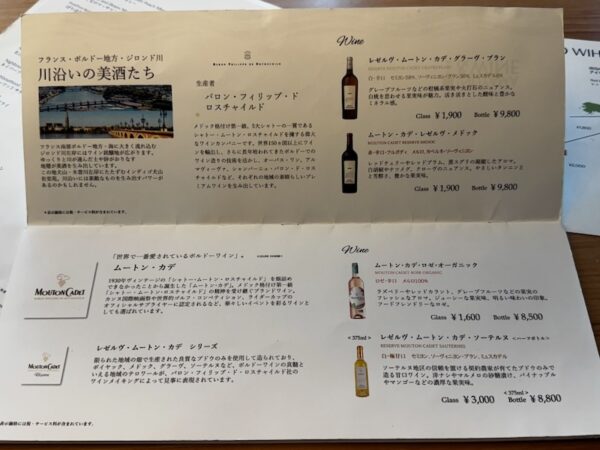 フランス・ボルドー地方・ジロンド川
川沿いの美酒たち
フランス南部ボルドー地方・海に大きく流れ込む
ジロンド川岸にはワイン試験場が広がります。
ゆっくりと川が運んだ土や砂からなす
地層が美酒を生み出しています。
BARON PHILIPPE DE ROTHSCHILD
生産者
バロン・フィリップ・ド
ロスチャイルド
メドック格付け第一級、5大シャトーの一賞である
シャトー・ムートン・ロスチャイルドを擁する偉大
なワインカンパニーです。世界150ヵ国以上にワイ
ンを輸出し、さらに長年培われてきたボルドーでの
ワイン造りの技術を活かし、オーパス・ワン、アル
マヴィーヴァ、シャンパーニュ・バロン・ド・ロス
チャイルドなど、それぞれの地域の素晴らしいプレ
ミアムワインを生み出しています。
Wine
レゼルヴ・ムートン・カデ・グラーヴ・ブラン
グレープフルーツなどの柑橘系果実や火打石のニュアンス。
白桃を思わせる果実味が魅力。活き活きとした酸味と豊かな
ミネラル感。
Glass ¥1,900 Bottle ¥9,800
ムートン・カデ・レゼルヴ・メドック
MOUTON CADET RESERVE MEDOC
レッドチェリーやレッドプラム、黒スグリの凝縮したアロマ。
白胡椒やナツメグ、クローヴのニュアンス。やさしいタンニン
とと芳醇さ、豊かな果実味。
Glass ¥1,900 Bottle ¥9,800
MOUTON CADET
BARON PHILIPPE DE ROTHSCHILD
「世界で一番愛されているボルドーワイン」。
ムートン・カデ
1930年ヴィンテージの「シャトー・ムートン・ロスチャイルド」を瓶詰め
できなかったことから誕生した「ムートン・カデ」。メドック格付け第一級
「シャトー・ムートン・ロスチャイルド」の精神を受け継ぐブランドワイン。
カンヌ国際映画祭や世界的ゴルフ・コンペティション、ライダーカップの
オフィシャルサプライヤーに認定されるなど、華々しいイベントを彩るワインと
しても選ばれています。
MOUTON CADET
Réserve
レゼルヴ・ムートン・カデ シリーズ
限られた地域の畑で生産された良質なブドウのみを使用して造られており、
ポイヤック、メドック、グラーヴ、ソーテルヌなど、ボルドーワインの真髄と
いえる地域のテロワールが、バロン・フィリップ・ド・ロスチャイルド社の
ワインメイキングによって見事に表現されています。
Wine
ムートン・カデ・ロゼ・オーガニック
MOUTON CADET ROSE ORGANIC
ロゼ・辛口 メルロ100%
ラズベリーやレッドカラント、グレープフルーツなどの果実の
フレッシュなアロマ。ジューシーな果実味。明るい味わいの印象。
フードフレンドリーなロゼ。
Glass ¥1,600 Bottle ¥8,500
<375ml>
レゼルヴ・ムートン・カデ・ソーテルヌ <ハーフボトル>
RESERVE MOUTON CADET SAUTERNES
白・極甘口 セミヨン、ソーヴィニヨン・ブラン、ミュスカデル
ソーテルヌ地区の信頼を置ける契約農家が育てたブドウのみで
造る甘口ワイン。洋ナシやマルメロの砂糖漬け、パイナップル
やマンゴーなどの濃厚な果実味。
Glass ¥3,000 <375ml> Bottle ¥8,800